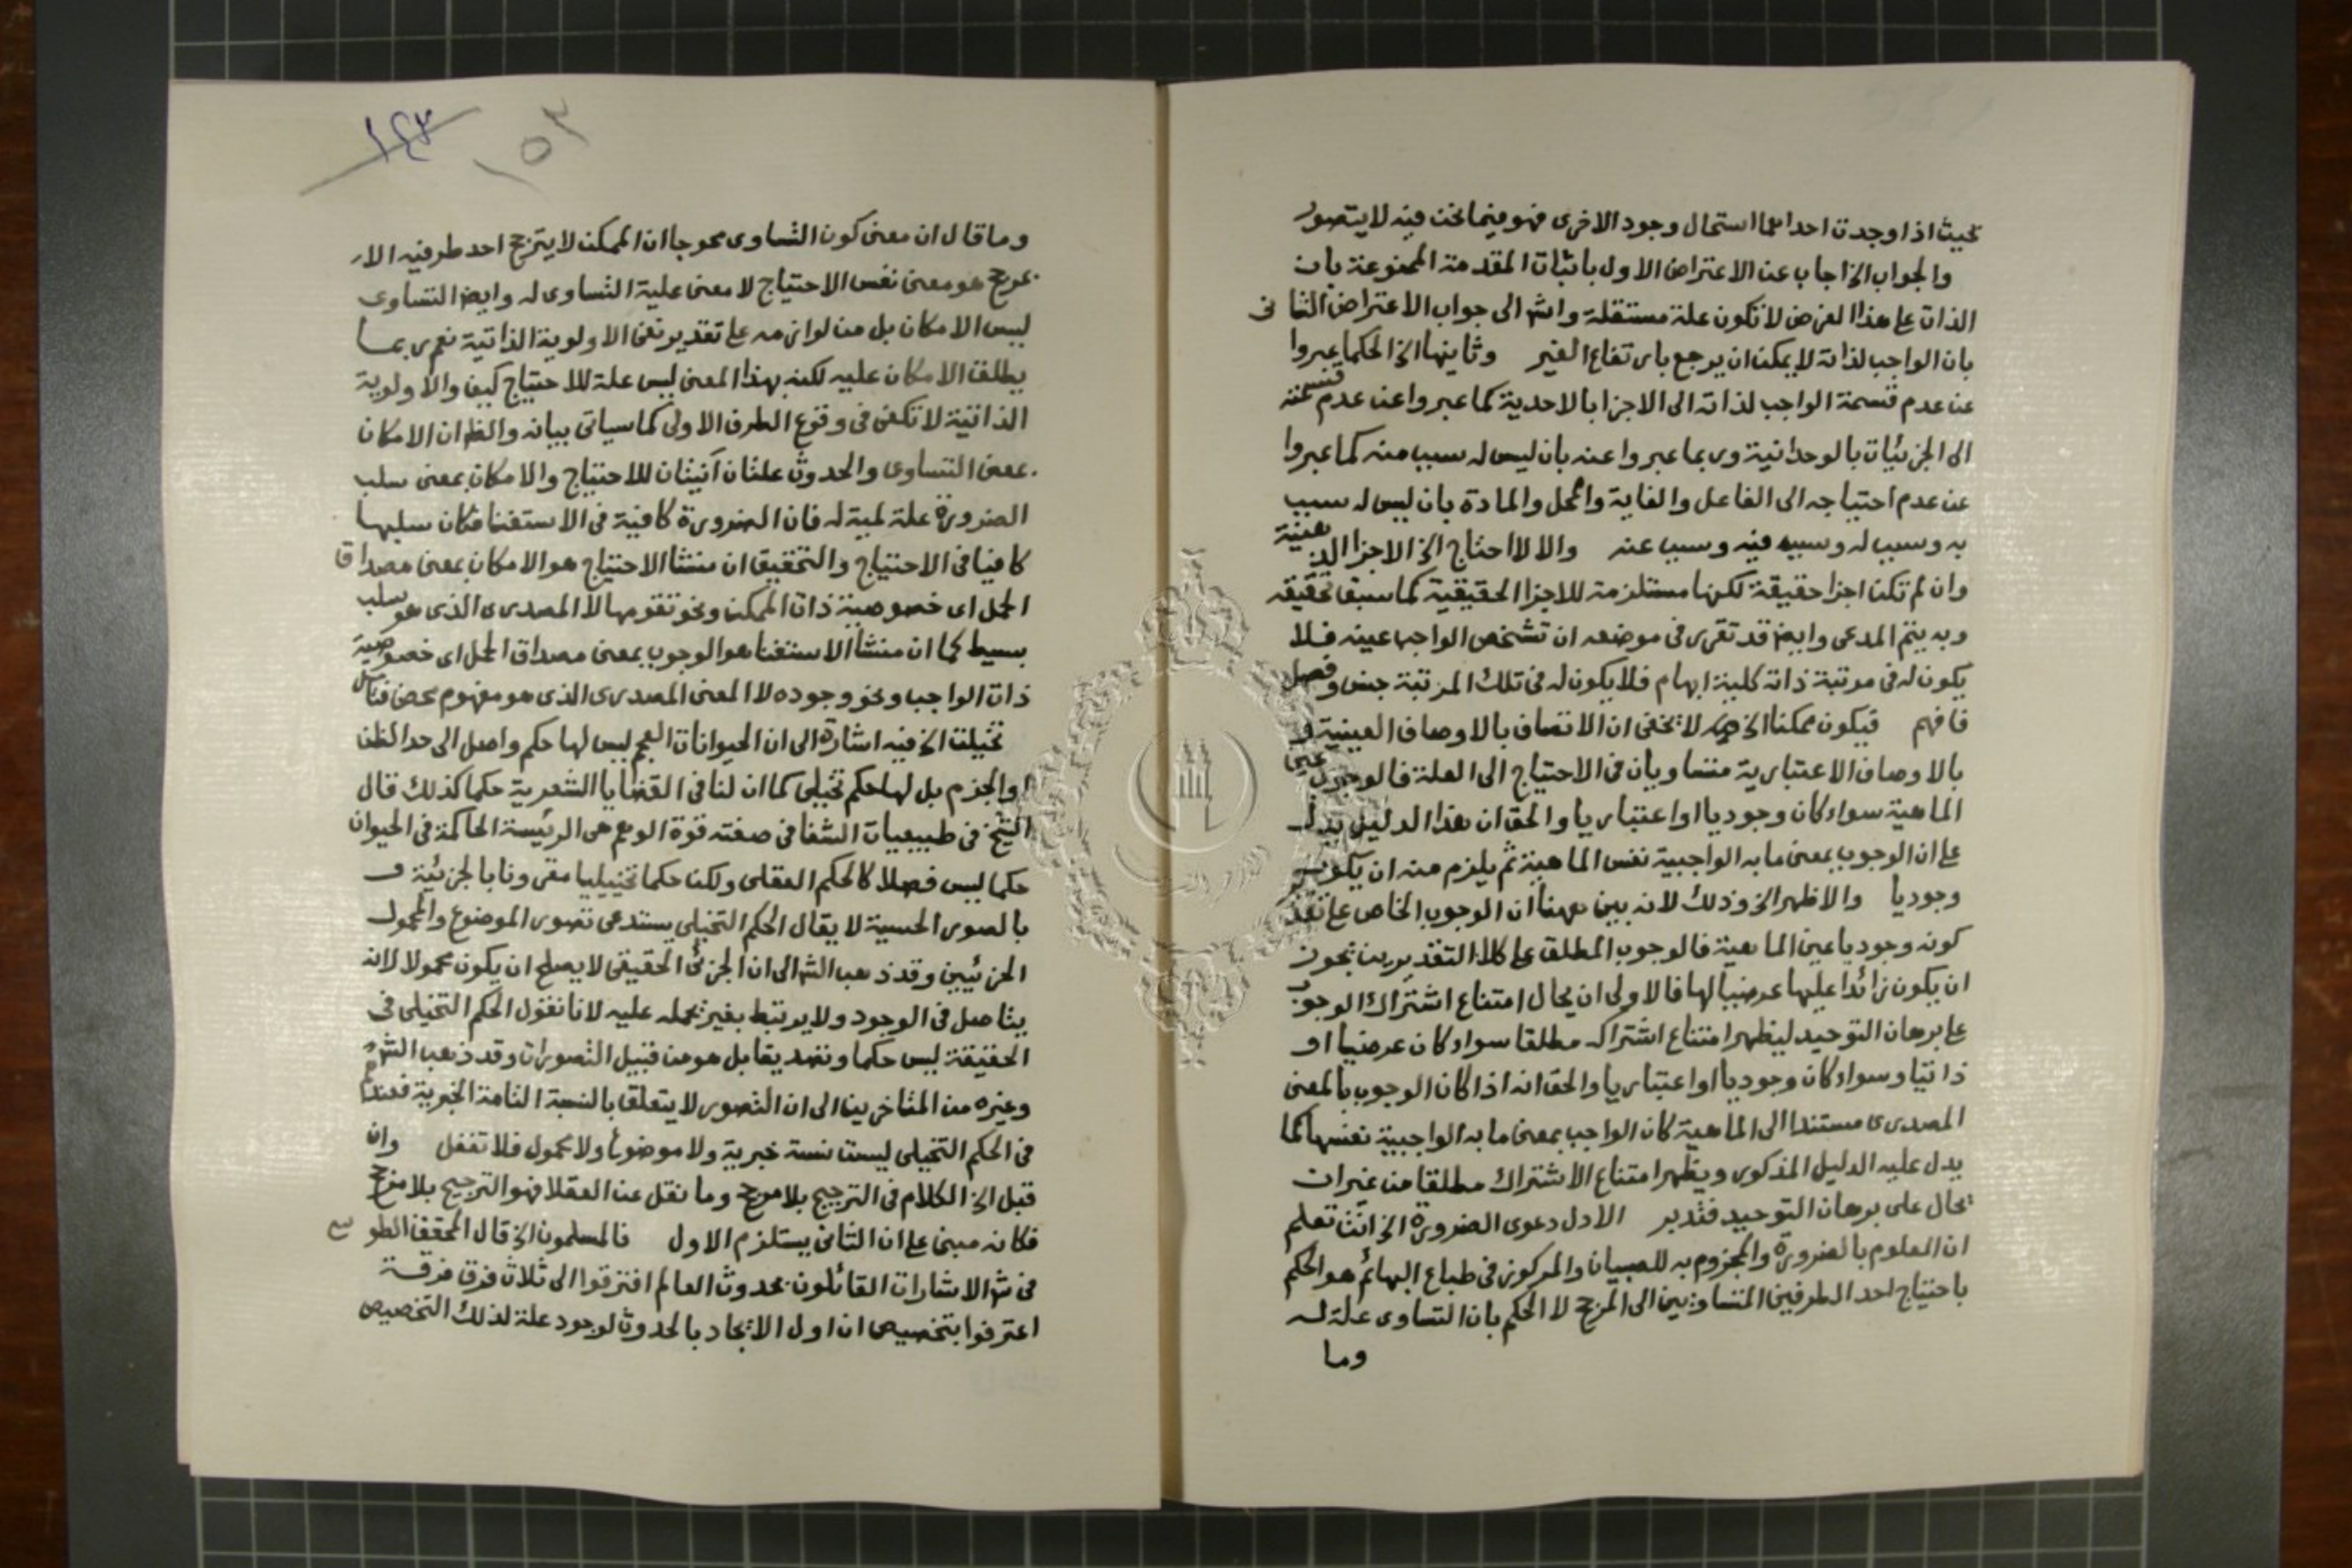 بحيث اذا وجدت احداهما استحال وجود الاخرى فهو فيما نحن فيه لا يتصور
والجواب الخ اجاب عن الاعتراض الاول باثبات المقدمة الممنوعة بان
الذات على هذا الفرض لا تكون علة مستقلة واشار الى جواب الاعتراض الثانى
بان الواجب لذاته لا يمكن ان يرجع بارتفاع الغير وثانيها الخ الحكما عبروا
عن عدم قسمة الواجب لذاته الى الاجزا بالاحدية كما عبروا عن عدم قسمته
الى الجزئيات بالوحدانية وربما عبروا عنه بان ليس له سبب منه كما عبروا
عن عدم احتياجه الى الفاعل والغاية والمحل والمادة بان ليس له سبب
به وسبب له وسبب فيه وسبب عنه والا لاحتاج الخ الاجزا الذهنية
وان لم تكن اجزا حقيقة لكنها مستلزمة للاجزا الحقيقية كما سبق تحقيقه
وبه يتم المدعى وايضا قد تقرر فى موضعه ان تشخص الواجب عينه فلا
يكون له فى مرتبة ذاته كلية ابهام فلا يكون له فى تلك المرتبة جنس وفصل
فافهم فيكون ممكنا الخ لا يخفى ان الاتصاف بالاوصاف العينية و
بالاوصاف الاعتبارية متساويان فى الاحتياج الى العلة فالوجوب عين
الماهية سواء كان وجوديا او اعتباريا والحق ان هذا الدليل يدل
على ان الوجوب بمعنى ما به الواجبية نفس الماهية ثم يلزم منه ان يكون
وجوديا والاظهر الخ وذلك لانه بين ههنا ان الوجوب الخاص على تقدير
كونه وجوديا عين الماهية فالوجوب المطلق على كلا التقديرين يجوز
ان يكون زائدا عليها عرضيا لها فالاولى ان يحال امتناع اشتراك الوجوب
على برهان التوحيد ليظهر امتناع اشتراكه مطلقا سواء كان عرضيا او
ذاتيا وسواء كان وجوديا او اعتباريا والحق انه اذا كان الوجوب بالمعنى
المصدرى مستندا الى الماهية كان الواجب بمعنى ما به الواجبية نفسها كما
يدل عليه الدليل المذكور ويظهر امتناع الاشتراك مطلقا من غير ان
يحال على برهان التوحيد فتدبر الاول دعوى الضرورة الخ انت تعلم
ان المعلوم بالضرورة والمجزوم به للصبيان والمركوز فى طباع البهائم هو الحكم
باحتياج احد الطرفين المتساويين الى المرجح لا الحكم بان التساوى علة له
وما
١٤٣
١٥٣
وما قال ان معنى كون التساوى محوجا ان الممكن لا يترجح احد طرفيه الا
بمرجح هو معنى نفس الاحتياج لا معنى علية التساوى له وايضا التساوى
ليس الامكان بل من لوازمه على تقدير نفى الاولوية الذاتية نعم ربما
يطلق الامكان عليه لكنه بهذا المعنى ليس علة للاحتياج كيف والاولوية
الذاتية لا تكفى فى وقوع الطرف الاولى كما سياتى بيانه والظ ان الامكان
بمعنى التساوى والحدوث علتان آنيتان للاحتياج والامكان بمعنى سلب
الضرورة علة لمية له فان الضرورة كافية فى الاستغنا فكان سلبها
كافيا فى الاحتياج والتحقيق ان منشا الاحتياج هو الامكان بمعنى مصداق
الحمل اى خصوصية ذات الممكن ونحو تقومها لا المصدرى الذى هو سلب
بسيط كما ان منشا الاستغنا هو الوجوب بمعنى مصداق الحمل اى خصوصية
ذات الواجب ونحو وجوده لا المعنى المصدرى الذى هو مفهوم محض فتامل
تخيلت الخ فيه اشارة الى ان الحيوانات العجم ليس لها حكم واصل الى حد الظن
او الجزم بل لها حكم تخيلى كما ان لنا فى القضايا الشعرية حكما كذلك قال
الشيخ فى طبيعيات الشفا فى صفته قوة الوهم هى الرئيسة الحاكمة فى الحيوان
حكما ليس فصلا كالحكم العقلى ولكن حكما تخييليا مقرونا بالجزئية و
بالصور الحسية لا يقال الحكم التخيلى يستدعى تصور الموضوع والمحمول
الجزئيين وقد ذهب الش الى ان الجزئى الحقيقى لا يصلح ان يكون محمولا لانه
يتاصل فى الوجود ولا يرتبط بغير بحمله عليه لانا نقول الحكم التخيلى فى
الحقيقة ليس حكما وتصديقا بل هو من قبيل التصورات وقد ذهب الش
وغيره من المتاخرين الى ان التصور لا يتعلق بالنسبة التامة الخبرية فعندهم
فى الحكم التخيلى ليست نسبة خبرية ولا موضوع ولا محمول فلا تغفل وان
قيل الخ الكلام فى الترجيح بلا مرجح وما نقل عن العقلا فهو الترجيح بلا مرجح
فكانه مبنى على ان الثانى يستلزم الاول فالمسلمون الخ قال المحقق الطوسى
فى ش الاشارات القائلون بحدوث العالم افترقوا الى ثلاث فرق فرقة
اعترفوا بتخصيص ان اول الايجاد بالحدوث لوجود علة لذلك التخصيص